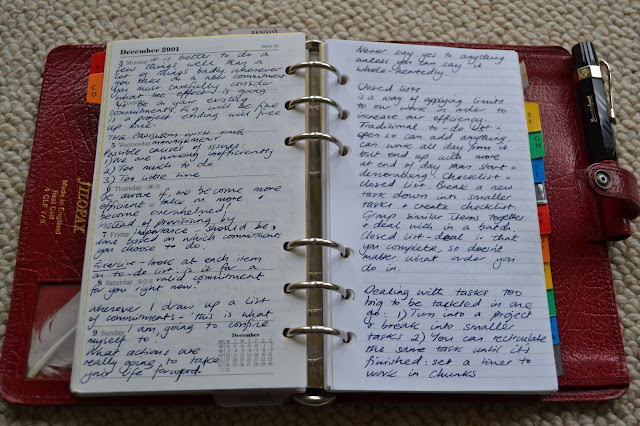 December 2001
Week 49
3 Monday it is better to do a
few things well than a
lot of things badly. whenever
you take on a new commitment
you must carefully consider
what the effect is going
to be on your existing
commitments e.g. will be fine
is a project ending will free
up time.
The problems with time
5 Wednesday management
Possible causes of issues:
1) We are working inefficiently
2) Too much to do
3) Too little time
6 Thursday
Be aware if we become more
efficient = take on more &
become overwhelmed,
instead of prioritising by
7 Friday importance - should be
done based on which commitments
you choose to do.
Exercise - look at each item
on to-do list. is it for a
8 Saturday valid commitment
for you right now.
Whenever I draw up a list
of commitments - 'this is what
9 Sunday I am going to confine
myself to.'
December
What actions are
really going to take
your life forward.
Never say yes to anything
unless you can say it
whole-heartedly.
Closed lists
is a way of applying limits
to our work in order to
increase our efficiency.
Traditional to-do list =
open so can add anything,
can work all day from it
but end up with more
at end of day than start =
demoralising. Checklist =
closed list. Break a new
task down into smaller
tasks & create checklist.
Group similar items together
& deal with in a batch.
Closed list - deal is that
you complete, so doesn't
matter what order you
do in.
Dealing with tasks too
big to be tackled in one
go. 1) Turn into a project
& break into smaller
tasks 2) You can recirculate
the same task until it's
finished: set a timer to
work in chunks
FILOFAX
Made in England
Real Calf
4 CLF 7/8